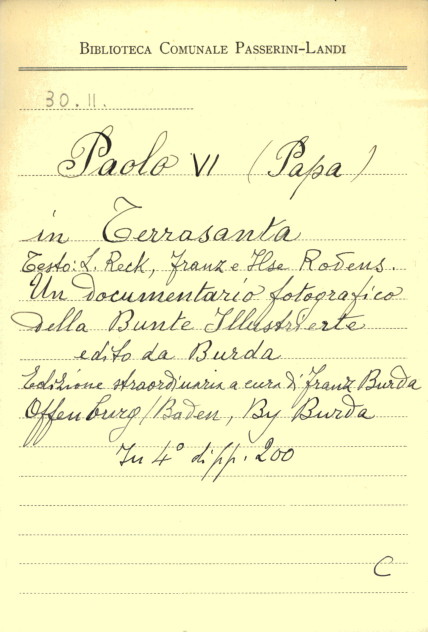 BIBLIOTECA COMUNALE PASSERINI-LANDI
30.11.
Paolo VI (Papa)
in Terrasanta
Testo: L. Reck, Franz e Ilse Rodens.
Un documentario fotografico
della Bunte Illustrierte
edito da Burda
Edizione straordinaria a cura di Franz Burda
Offenburg/Baden, By Burda
In 4° di pp. 200
C